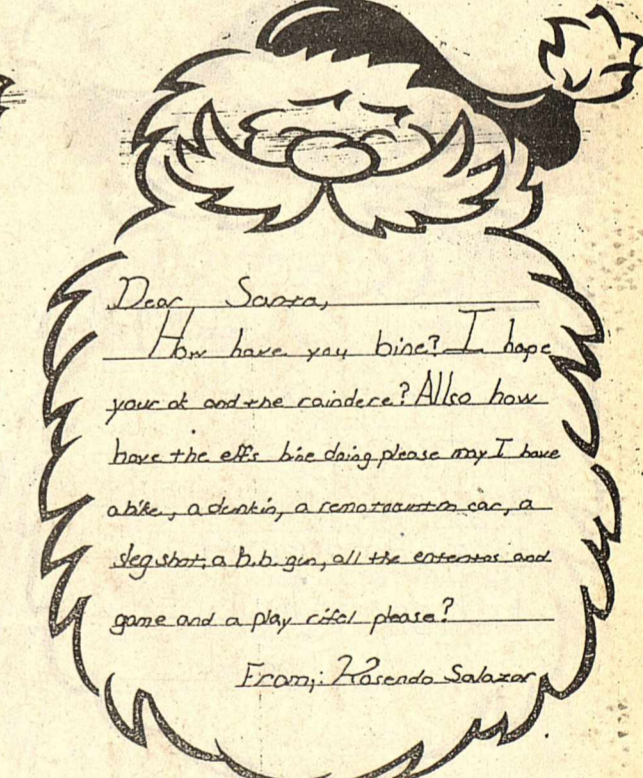 Dear Santa,
How have you bine? I hope
your ok and the raindere? Allso how
have the elfs bine doing please may I have
a bike, a dunkin, a car, a
slegshot, a b.b. gun, all the and
game and a play rifel please?
From; Rosendo Salazar